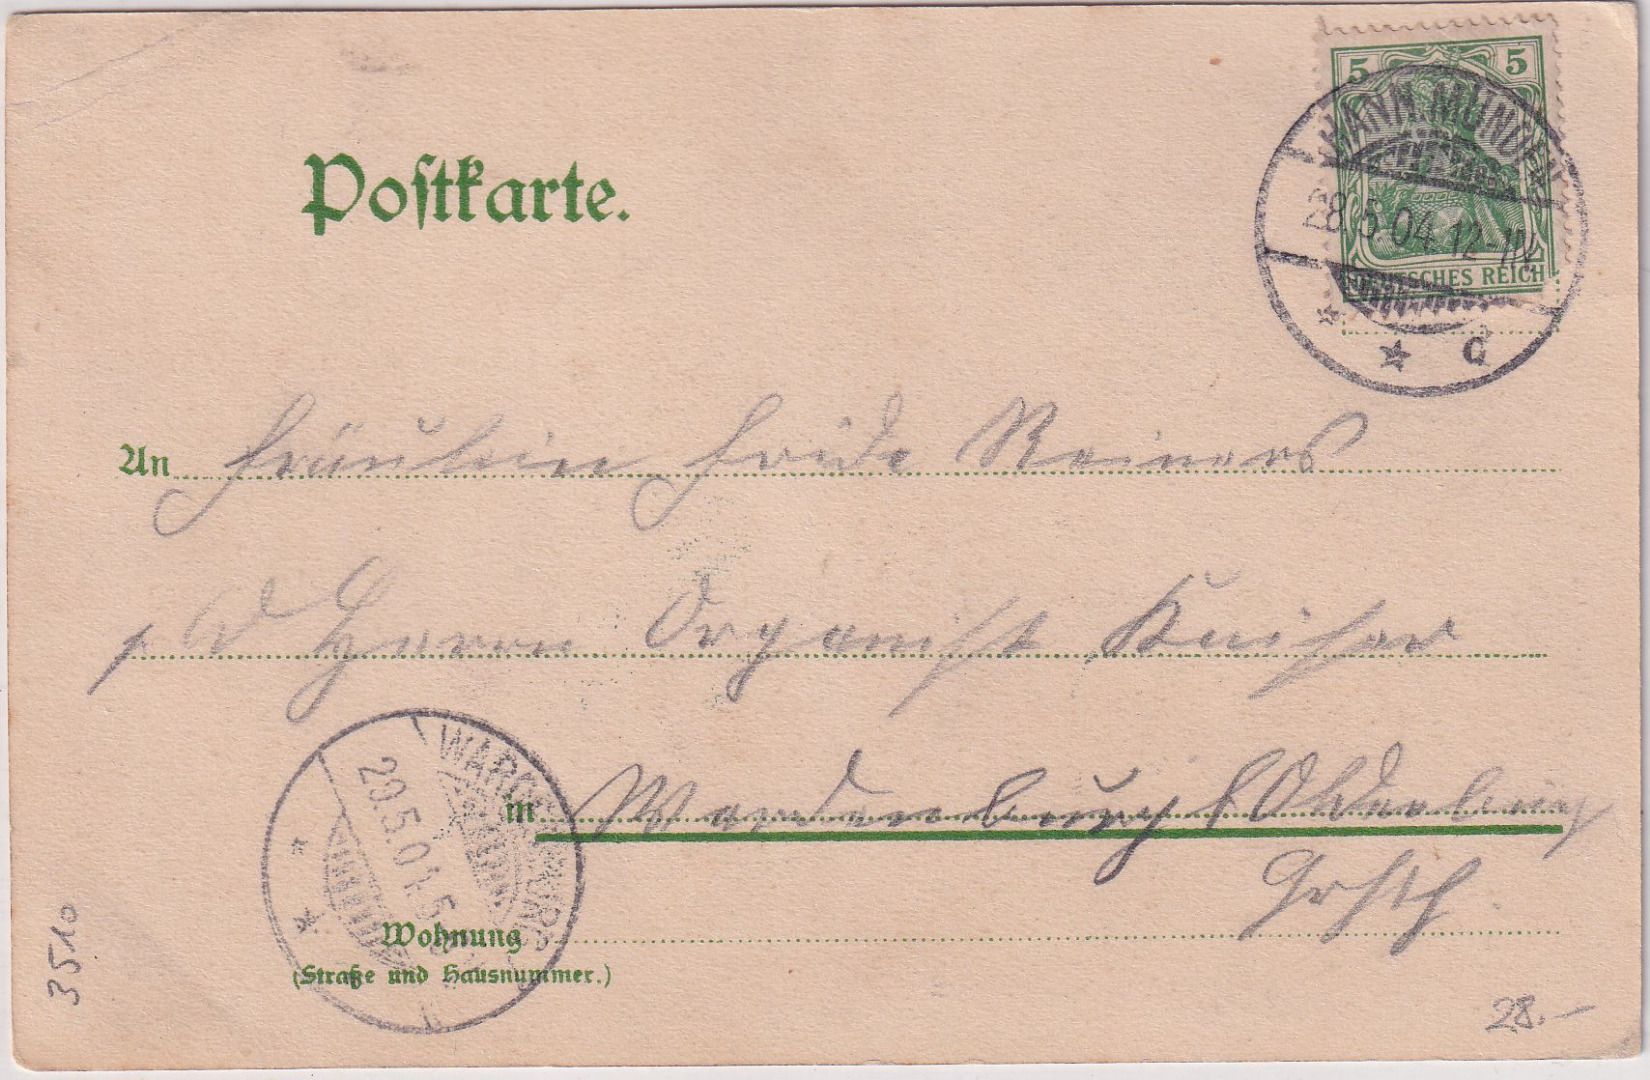 Postkarte.
5 5
DEUTSCHES REICH
HANN. MÜNDEN
28.5.04.12-1N.
* * d
An Fräulein Frida Reiners
p. Ad Herrn Organist Kaiser
in Wardenburg b Oldenburg
Grhth.
WARDENBURG
29.5.04.5
* *
Wohnung
(Straße und Hausnummer.)
3510
28.–